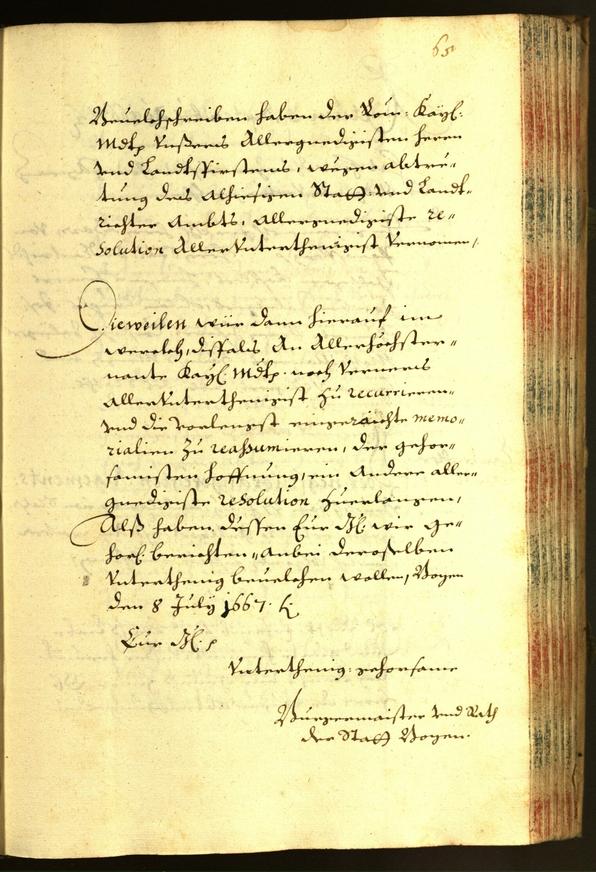 65
Beuelchschreiben haben der Röm: Kayl:
Mtt: Vnsers Allergnedigisten herrn
vnd Landtsfürstens, wegen abtre„
tung des Alhiesigen Statt: vnd Landt„
richter Ambts, Allergnedigiste re„
solution Allervnterthenigist vernomen,
Dieweilen wür dann hierauf im
werckh, diffals An Allerhöchster„
nante Kayl: Mtt: noch verners
Allervnterthenigist zu recurrieren„
vnd die vorlengst eingeraichte memo„
rialien zu reassumieren, der gehor„
samisten hoffnung, ein Andere aller„
gnedigiste resolution zuerlangen,
Alß haben dessen Eur Gl: wir ge„
hors: berichten„ anbei deroselben
vnterthenig beuelchen wollen, Bozen
den 8 July 1667.
Eur Gl:
vnterthenig: gehorsame
Burgermaister vnd Rath
der Statt Bozen.